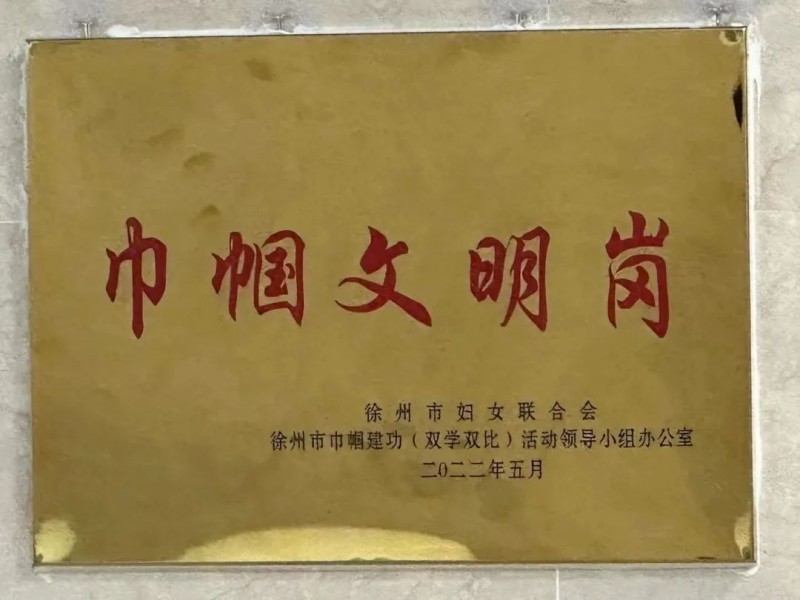 巾帼文明岗
徐州市妇女联合会
徐州市巾帼建功（双学双比）活动领导小组办公室
二0二二年五月